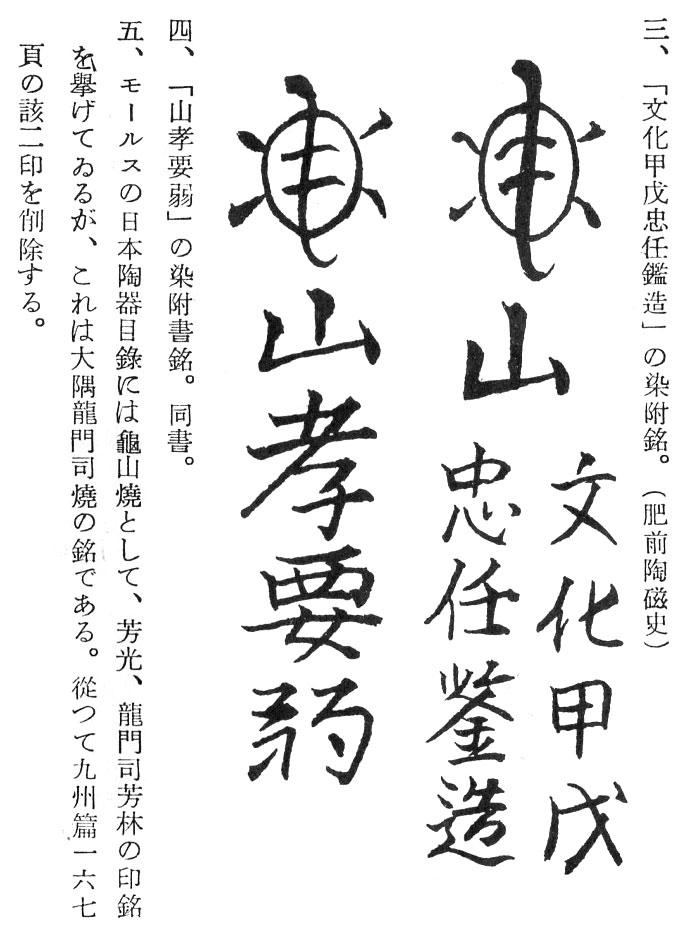 三、「文化甲戊忠任鑑造」の染附銘。(肥前陶磁史)
龜山
文化甲戊
忠任鑒造
龜山孝要弱
四、「山孝要弱」の染附書銘。同書。
五、モールスの日本陶器目錄には龜山燒として、芳光、龍門司芳林の印銘
を擧げてゐるが、これは大隅龍門司燒の銘である。從つて九州篇一六七
頁の該二印を削除する。